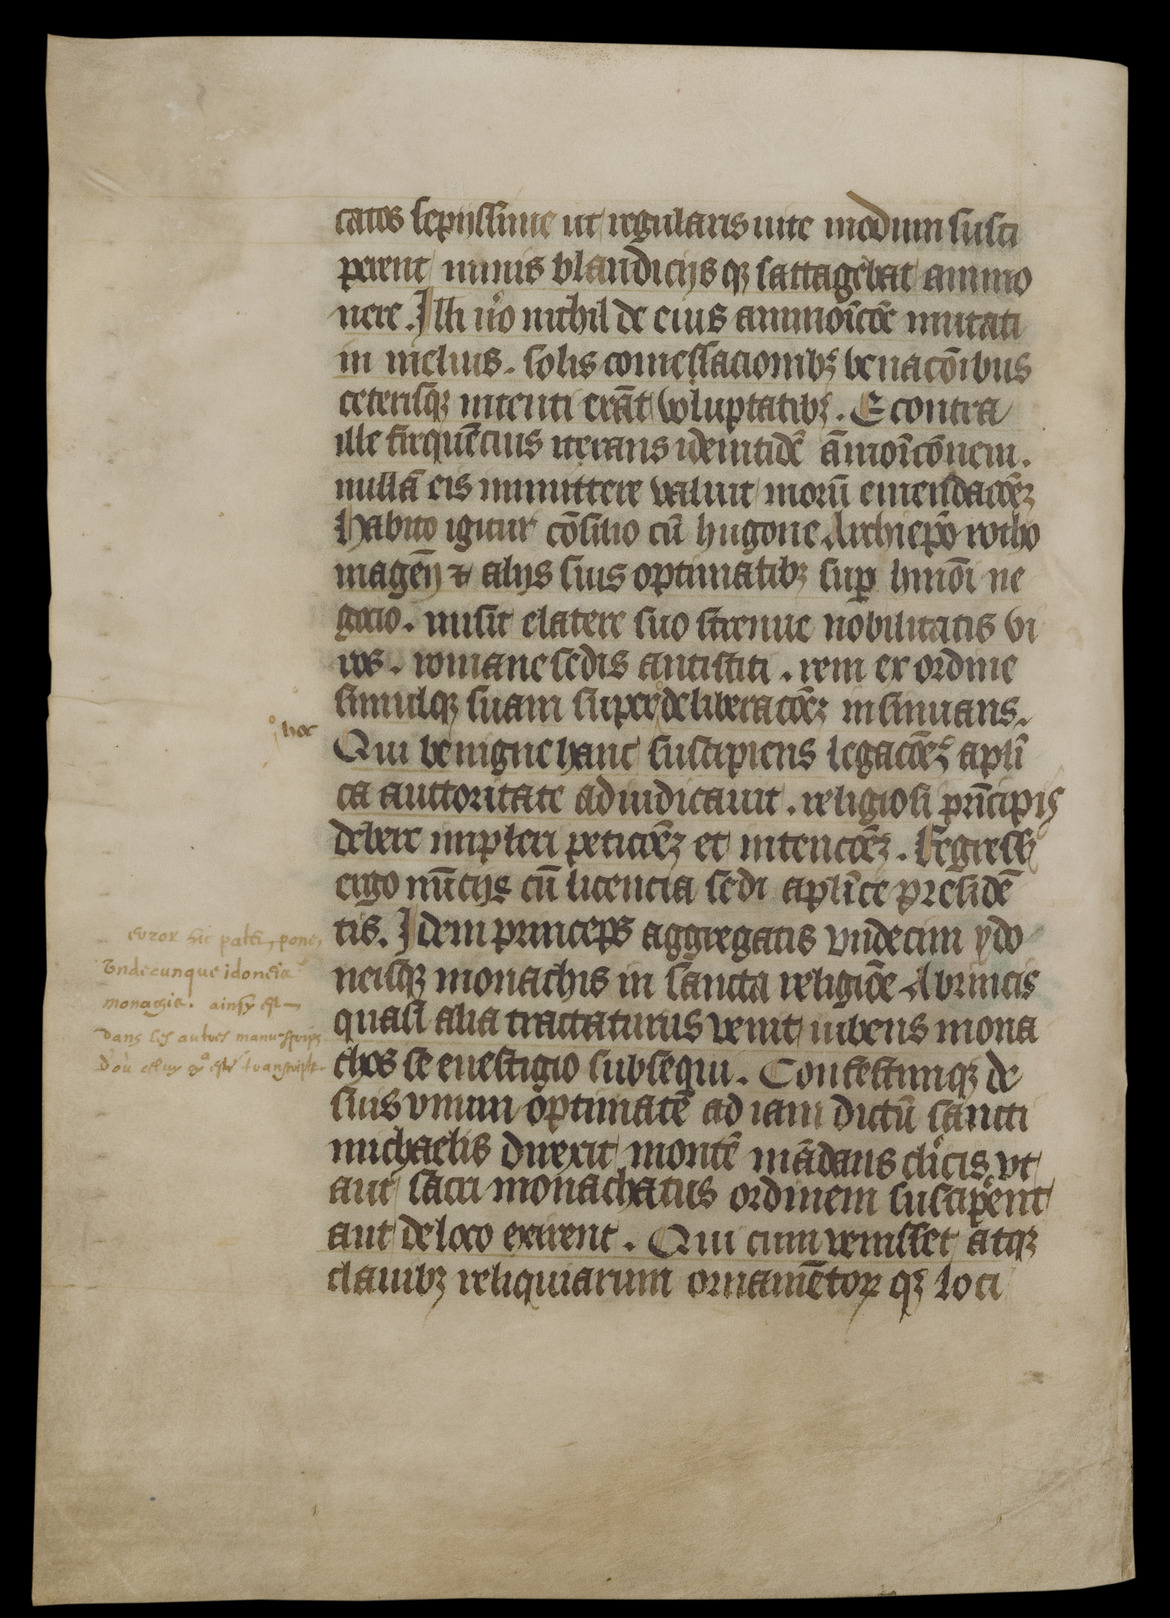 catos sepiissime ut regularis uite modum susci
perent minis blandicijs qꝫ sattagebat ammo
nere. Illi ūo nichil de eius ammoic̄oe mutati
in melius. solis comessacionibꝫ venac̄oibus
ceterisqꝫ intenti erāt voluptatibꝫ. E contra
ille frequēcius iterans idemtidē āmoic̄onem.
nullā eis inmittere valuit morū emendac̄oeꝫ
Habito igitur cōsilio cū hugone Archiep̄o rotho
magēn ⁊ alijs suis optimatibꝫ sup̄ hmōi ne
gocio. misit elatere suo strenue nobilitatis vi
ros. romane sedis antistiti. rem ex ordine
simulqꝫ suam super deliberac̄oeꝫ insinuans.
hoc
Qui benigne hanc suscipiens legac̄oeꝫ apl̄i
ca auctoritate adiudicauit. religiosi prīcipis
debere impleri petic̄oeꝫ et intenc̄oeꝫ. Regressis
ergo nūcijs cū licencia sedi apl̄ice presidē
tis. Idem princeps aggregatis vndecim ydo
neisqꝫ monachis in sancta religiōe Abrincis
quasi alia tractaturus venit iubens mona
chos se euestigio subsequi. Confestimqꝫ de
suis vnum optimatē ad iam dictū sancti
michaelis direxit montē mādans cl̄icis vt
aut sācti monachatus ordinem suscip̄ent
aut de loco exirent. Qui cum venisset atqꝫ
clauibꝫ reliquiarum ornamētoꝝ qꝫ loci
error hic patet, pone,
Vndecunque idoneis
monachis. ainsy est
dans les autres manuscripts
d'où cestuy cy est transcript